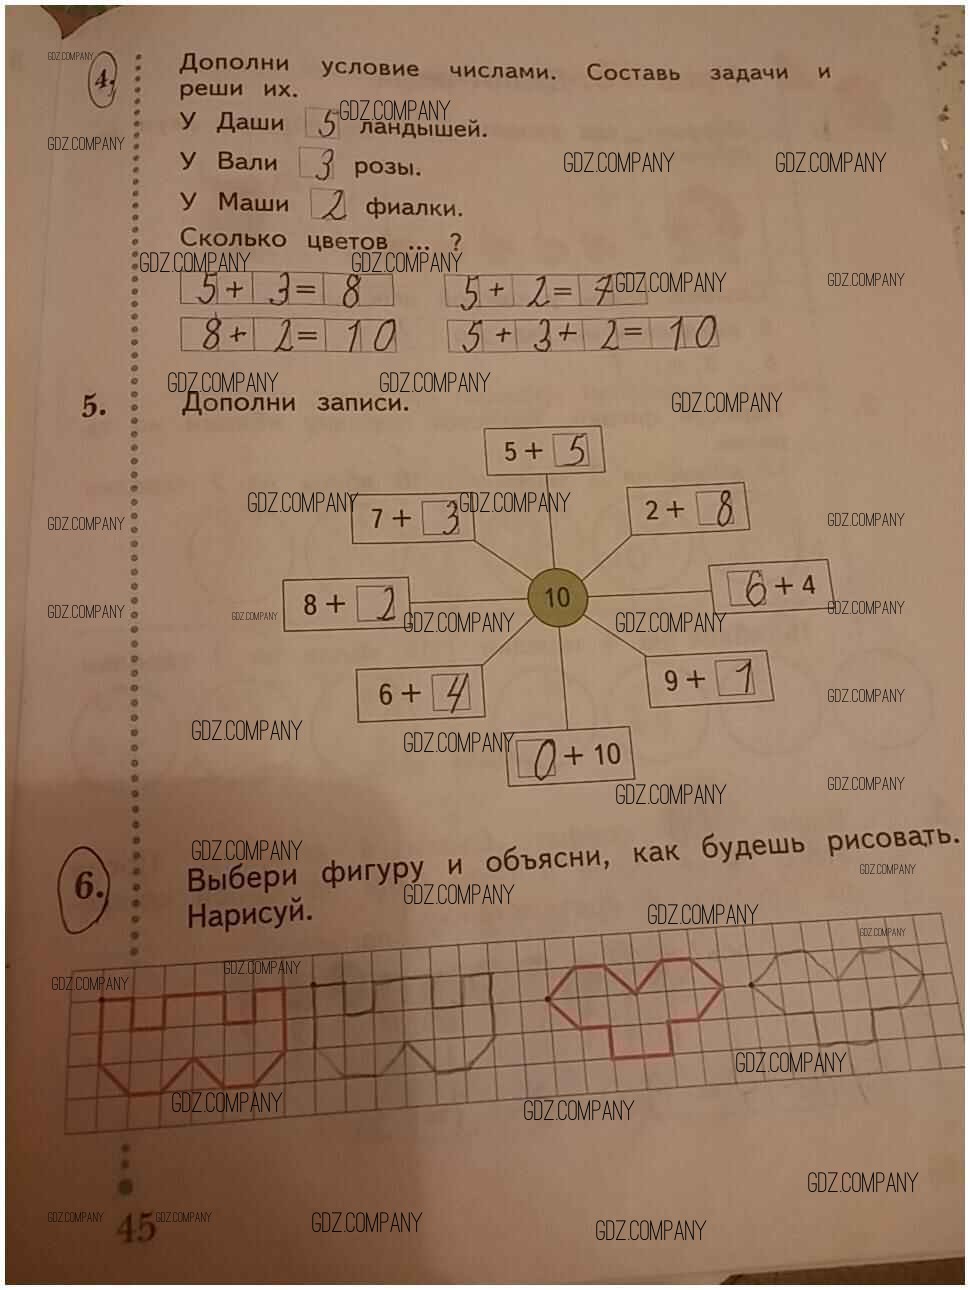 4. Дополни условие числами. Составь задачи и
реши их.
У Даши 5 ландышей.
У Вали 3 розы.
У Маши 2 фиалки.
Сколько цветов ... ?
5 + 3 = 8
5 + 2 = 7
8 + 2 = 10
5 + 3 + 2 = 10
5. Дополни записи.
5 + 5
7 + 3
2 + 8
8 + 2
10
6 + 4
6 + 4
9 + 1
0 + 10
6. Выбери фигуру и объясни, как будешь рисовать.
Нарисуй.
45
GDZ.COMPANY